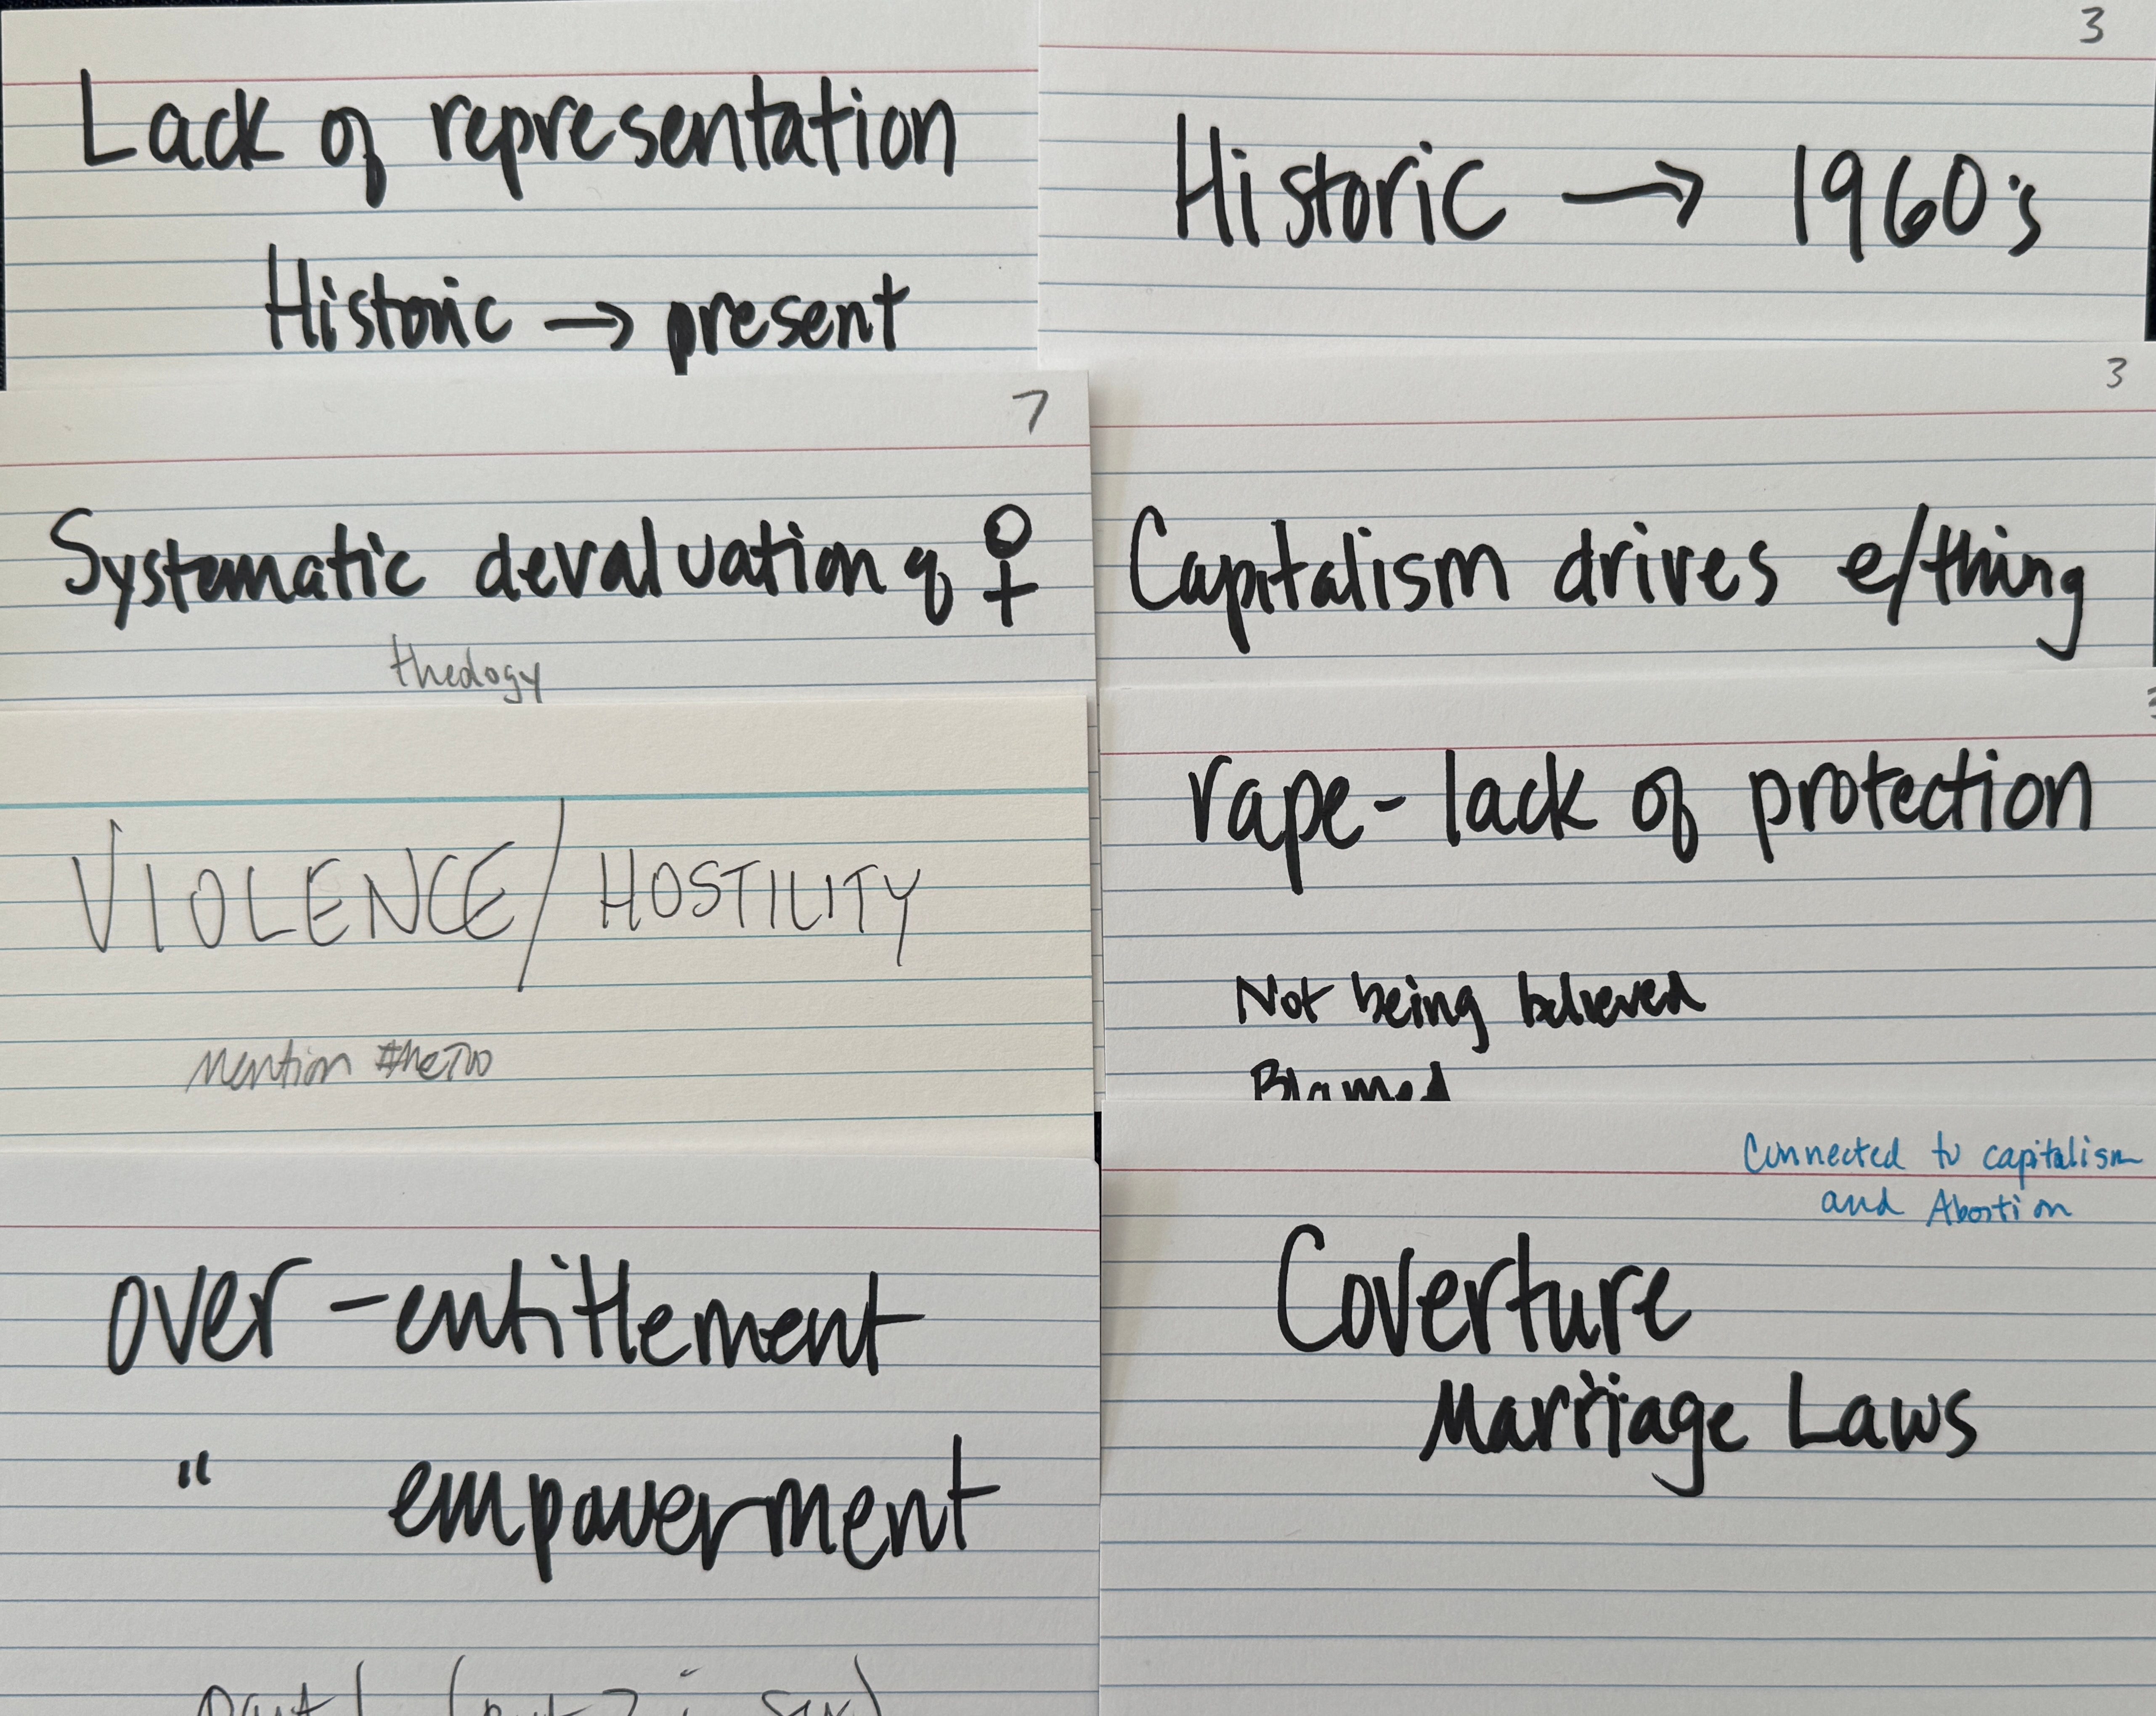 Lack of representation
Historic → present
3
Historic → 1960's
7
Systematic devaluation of ♀
theology
3
Capitalism drives e/thing
VIOLENCE/HOSTILITY
Mention #MeToo
rape - lack of protection
Not being believed
Blamed
over-entitlement
" empowerment
part 1 (part 2 is sex)
Connected to capitalism
and Abortion
Coverture
Marriage Laws